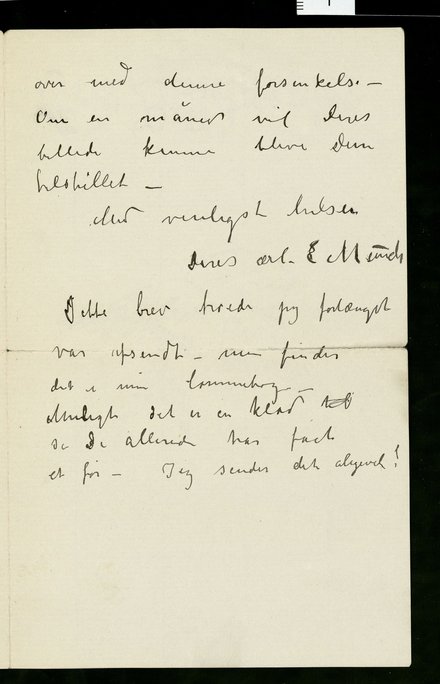 over med denne forsinkelse –
Om en måned vil Deres
billede kunne blive Dem
tilstillet –
Med venligst hilsen
Deres ærb. E Munch
Dette brev troede jeg forlængst
var afsendt – men finder
det i min lommebog –
Muligt det er en klad
så De allerede har fået
et før – Jeg sender det aligevel!